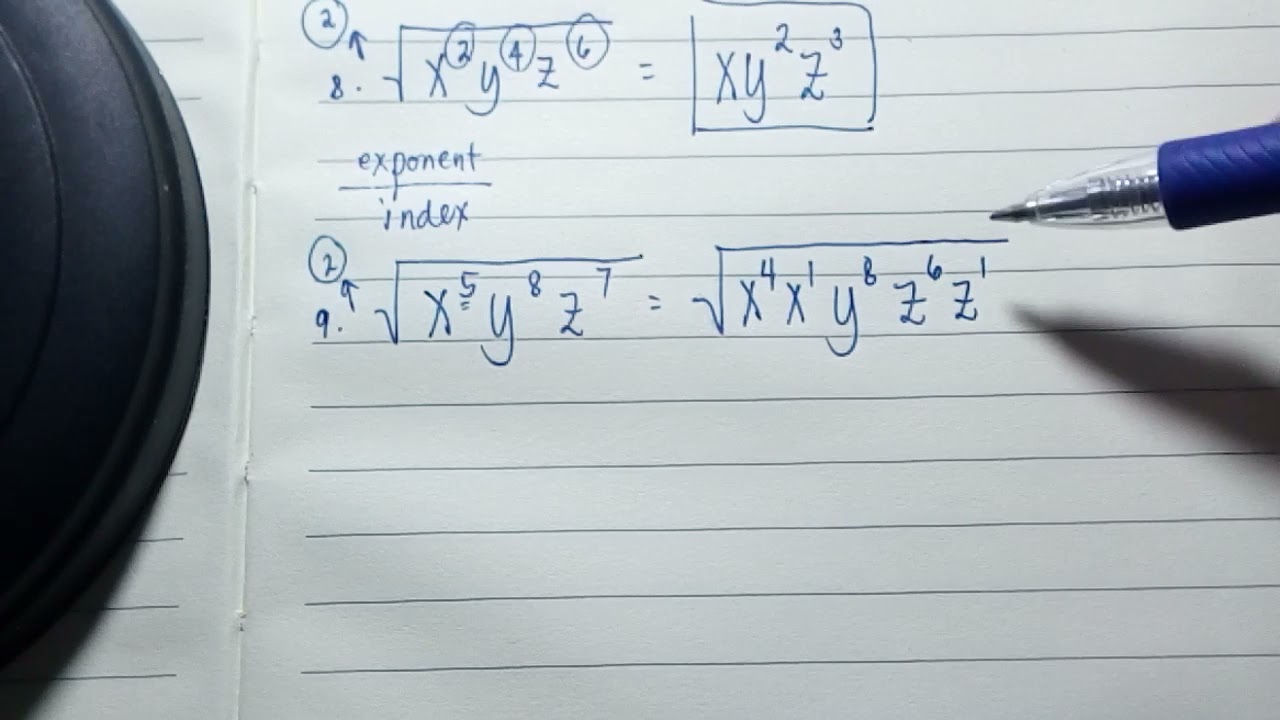 ②
8. √x²y⁴z⁶ = xy²z³
exponent
index
②
9. √x⁵y⁸z⁷ = √x⁴x¹y⁸z⁶z¹